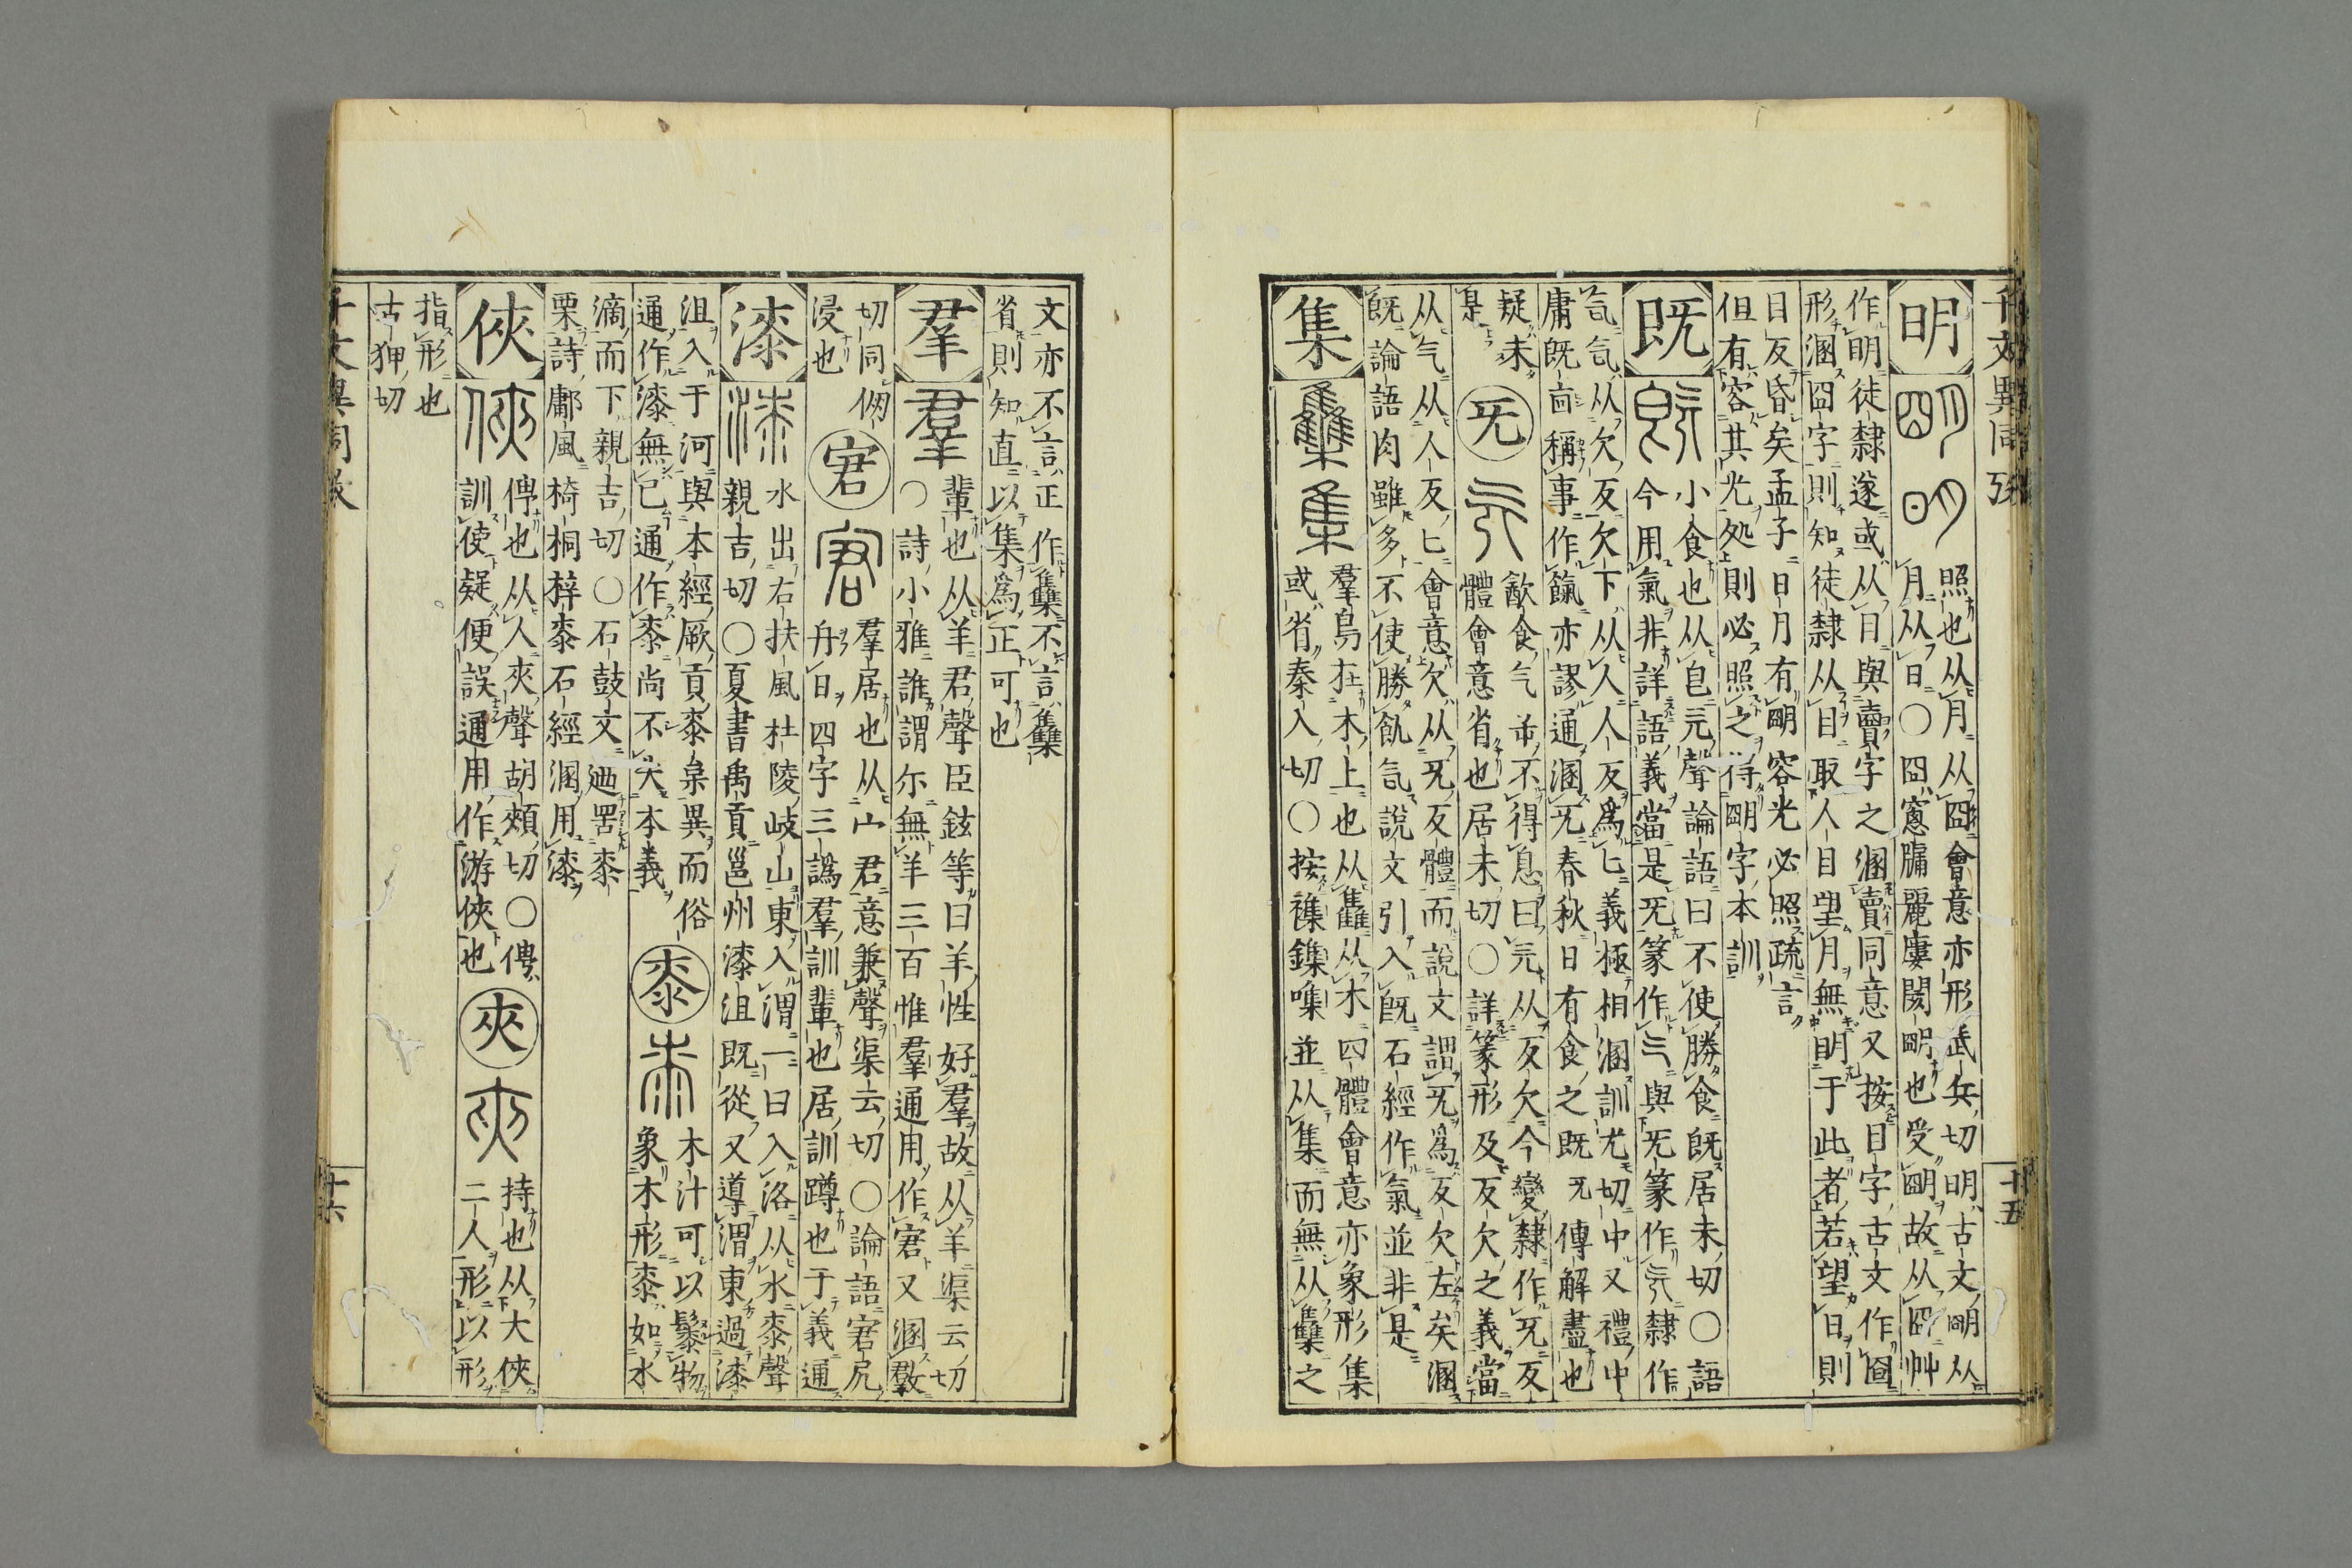 千文異同攷
明
照也从月从囧會意亦形武兵切明古文朙从
月从日〇囧窻牖麗廔闓明也受朙故从囧艸
作明徒隸遂或从日與賣字之溷賣同意又按目字古文作囼
形溷囧字則知徒隸从目取人目望月無明于此者若望日則
日反昏矣孟子日月有朙容光必照疏言
但有容其光処則必照之得朙字本訓
既
小食也从皀旡聲論語曰不使勝食既居未切〇語
今用氣非詳語義當是旡篆作與旡篆作隸作
欠从欠反欠下从人人反爲匕義極相溷訓尤切中又禮中
庸既稟稱事作餼亦謬通溷旡春秋日有食之既旡傳解盡也
疑未
是
旡
歠食气屰不得息曰旡从反欠今變隸作旡反
體會意省也居未切〇詳篆形及反欠之義當
从气从人反匕會意欠从旡反體而說文謂旡爲反欠左矣溷
既論語肉雖多不使勝飢說文引入既石經作氣並非是
集
羣鳥在木上也从雥从木四體會意亦象形集
或省秦入切〇按襍鏶噍並从集而無从雧之
文亦不言正作雧不言雧
省則知直以集爲正可也
羣
輩也从羊君聲臣鉉等曰羊性好羣故从羊渠云切
〇詩小雅誰謂尔無羊三百惟羣通用作宭又溷㪊
切同㑺
浸也
宭
羣居也从宀君意兼聲渠云切〇論語宭居
舟曰四字三譌羣訓輩也居訓蹲也于義通
漆
水出右扶風杜陵岐山東入渭一曰入洛从水桼聲
親吉切〇夏書禹貢邕州漆沮既從又導渭東過漆
沮入于河與本經厥貢桼枲異而俗
通作漆無已通作桼尚不失本義
桼
木汁可以髹物
象木形桼如水
滴而下親吉切〇石鼓文迺罟桼
栗詩鄘風椅桐梓桼石經溷用漆
俠
俜也从人夾聲胡頰切〇俜
訓使疑便誤通用作游俠也
夾
持也从大俠
二人形以形
指形也
古狎切
千文異同攷
十五
十六